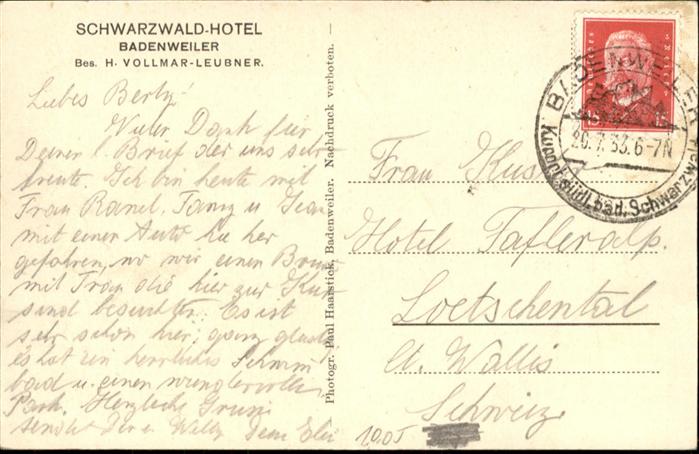 SCHWARZWALD-HOTEL
BADENWEILER
Bes. H. VOLLMAR-LEUBNER.
Liebes Berty!
Vielen Dank für
Deinen l. Brief der uns sehr
freute. Ich bin heute mit
Frau Fanny u
mit einem Auto hie her
gefahren, wo wir einen
mit Frau die hier zur Kur
sind besuchten. Es ist
sehr schön hier, ganz
es hat ein herrliches Schwimm
bad u. einen wundervollen
Park. Herzliche Grüsse
sendet Dir u. Willy Dein
Photogr. Paul Haarstick, Badenweiler. Nachdruck verboten.
BADENWEILER
20.7.33.6-7N
Kurort südl. bad. Schwarzwald
15 15
Frau
Hotel Fafleralp.
Loetschental
Ct. Wallis
Schweiz
1005